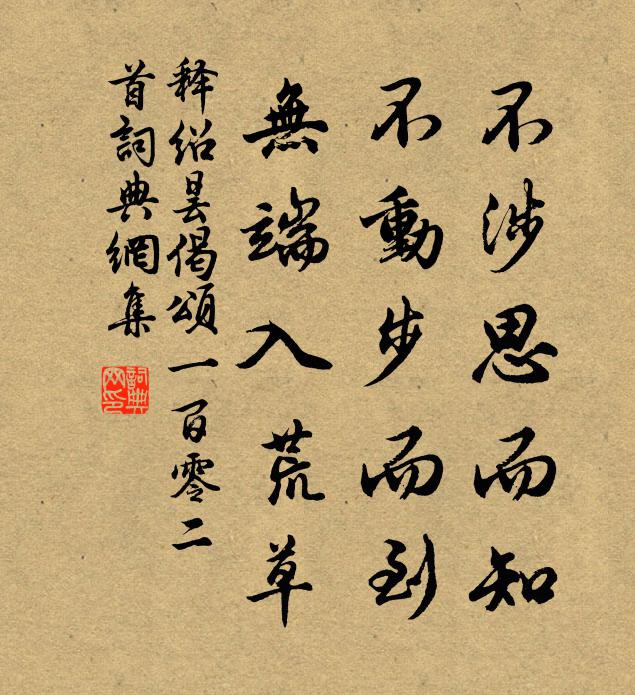 不涉思而知
不動步而到
無端入荒草
释绍昙偈頌一百零二
首詞典網集
詞典
网印